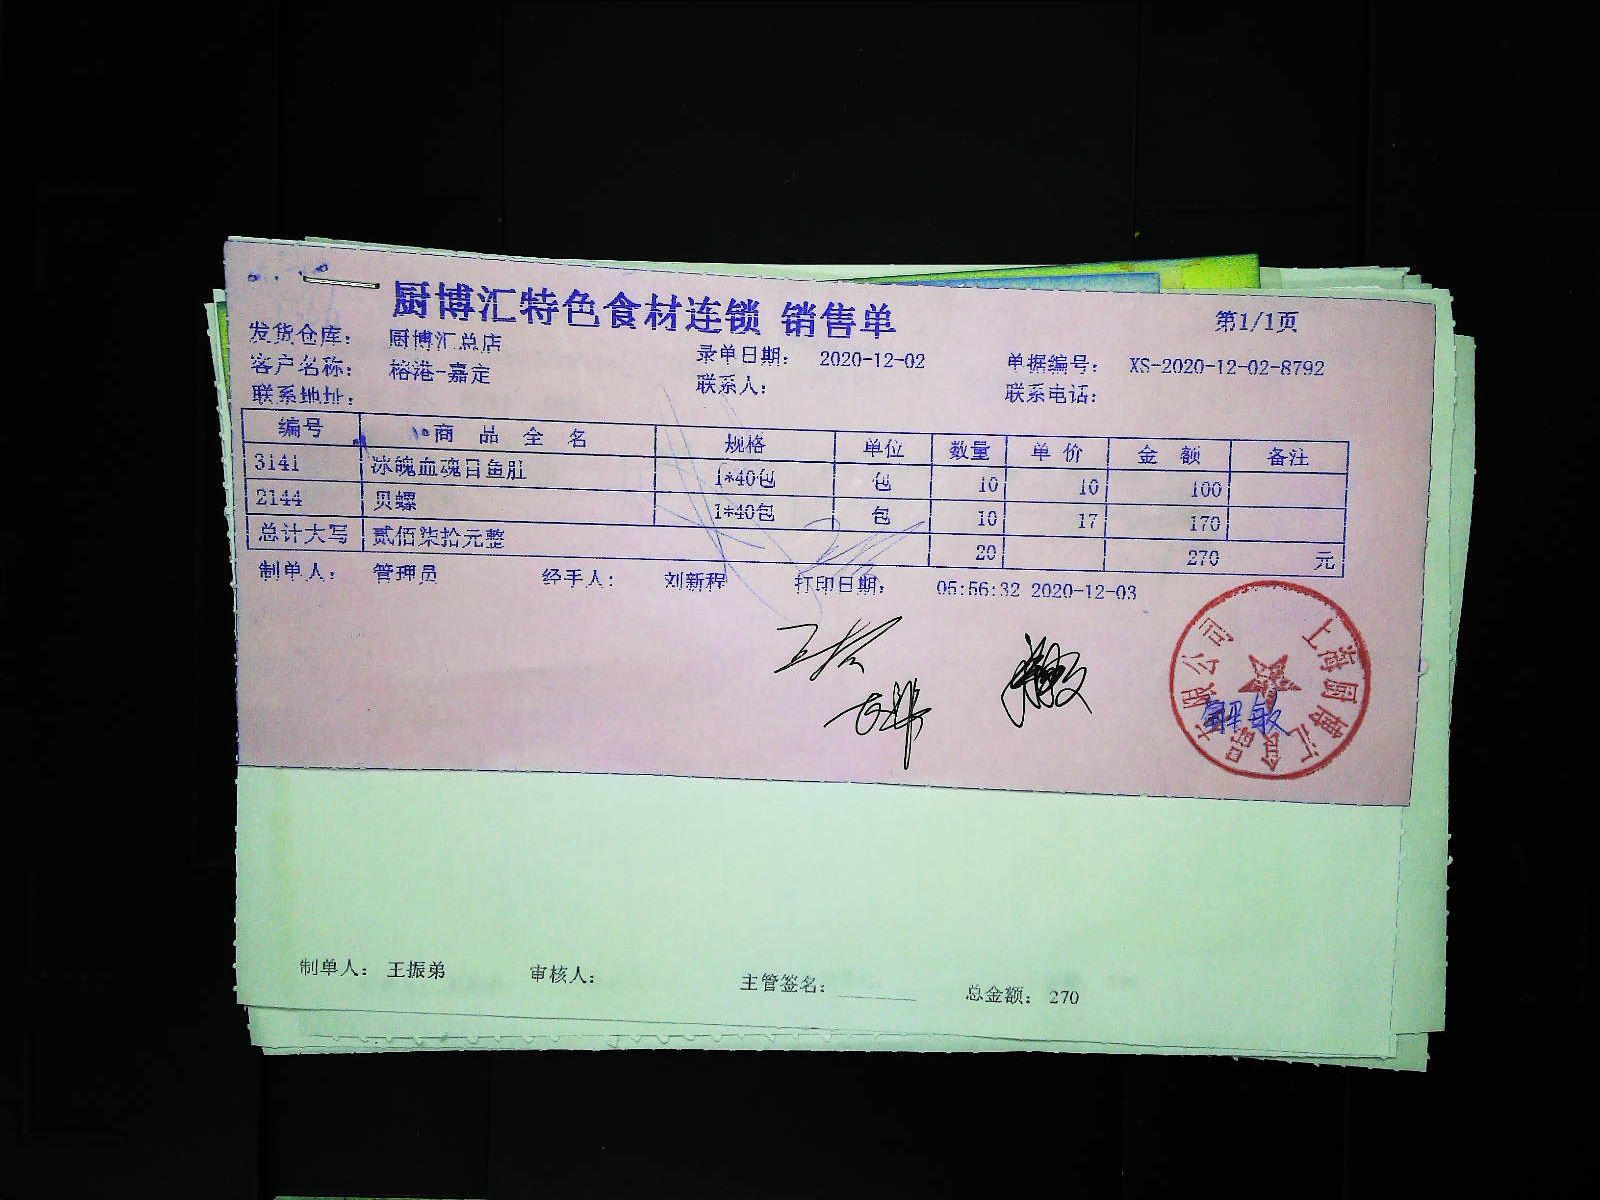 厨博汇特色食材连锁 销售单
第1/1页
发货仓库： 厨博汇总店
录单日期： 2020-12-02
单据编号： XS-2020-12-02-8792
客户名称： 榕港-嘉定
联系人：
联系电话：
联系地址：
编号 商品全名 规格 单位 数量 单价 金额 备注
3141 冰魄血魂目鱼肚 1*40包 包 10 10 100
2144 贝螺 1*40包 包 10 17 170
总计大写 贰佰柒拾元整 20 270 元
制单人： 管理员 经手人： 刘新程 打印日期： 05:56:32 2020-12-03
上海厨博汇食品有限公司
解敏
制单人： 王振弟 审核人： 主管签名： 总金额： 270